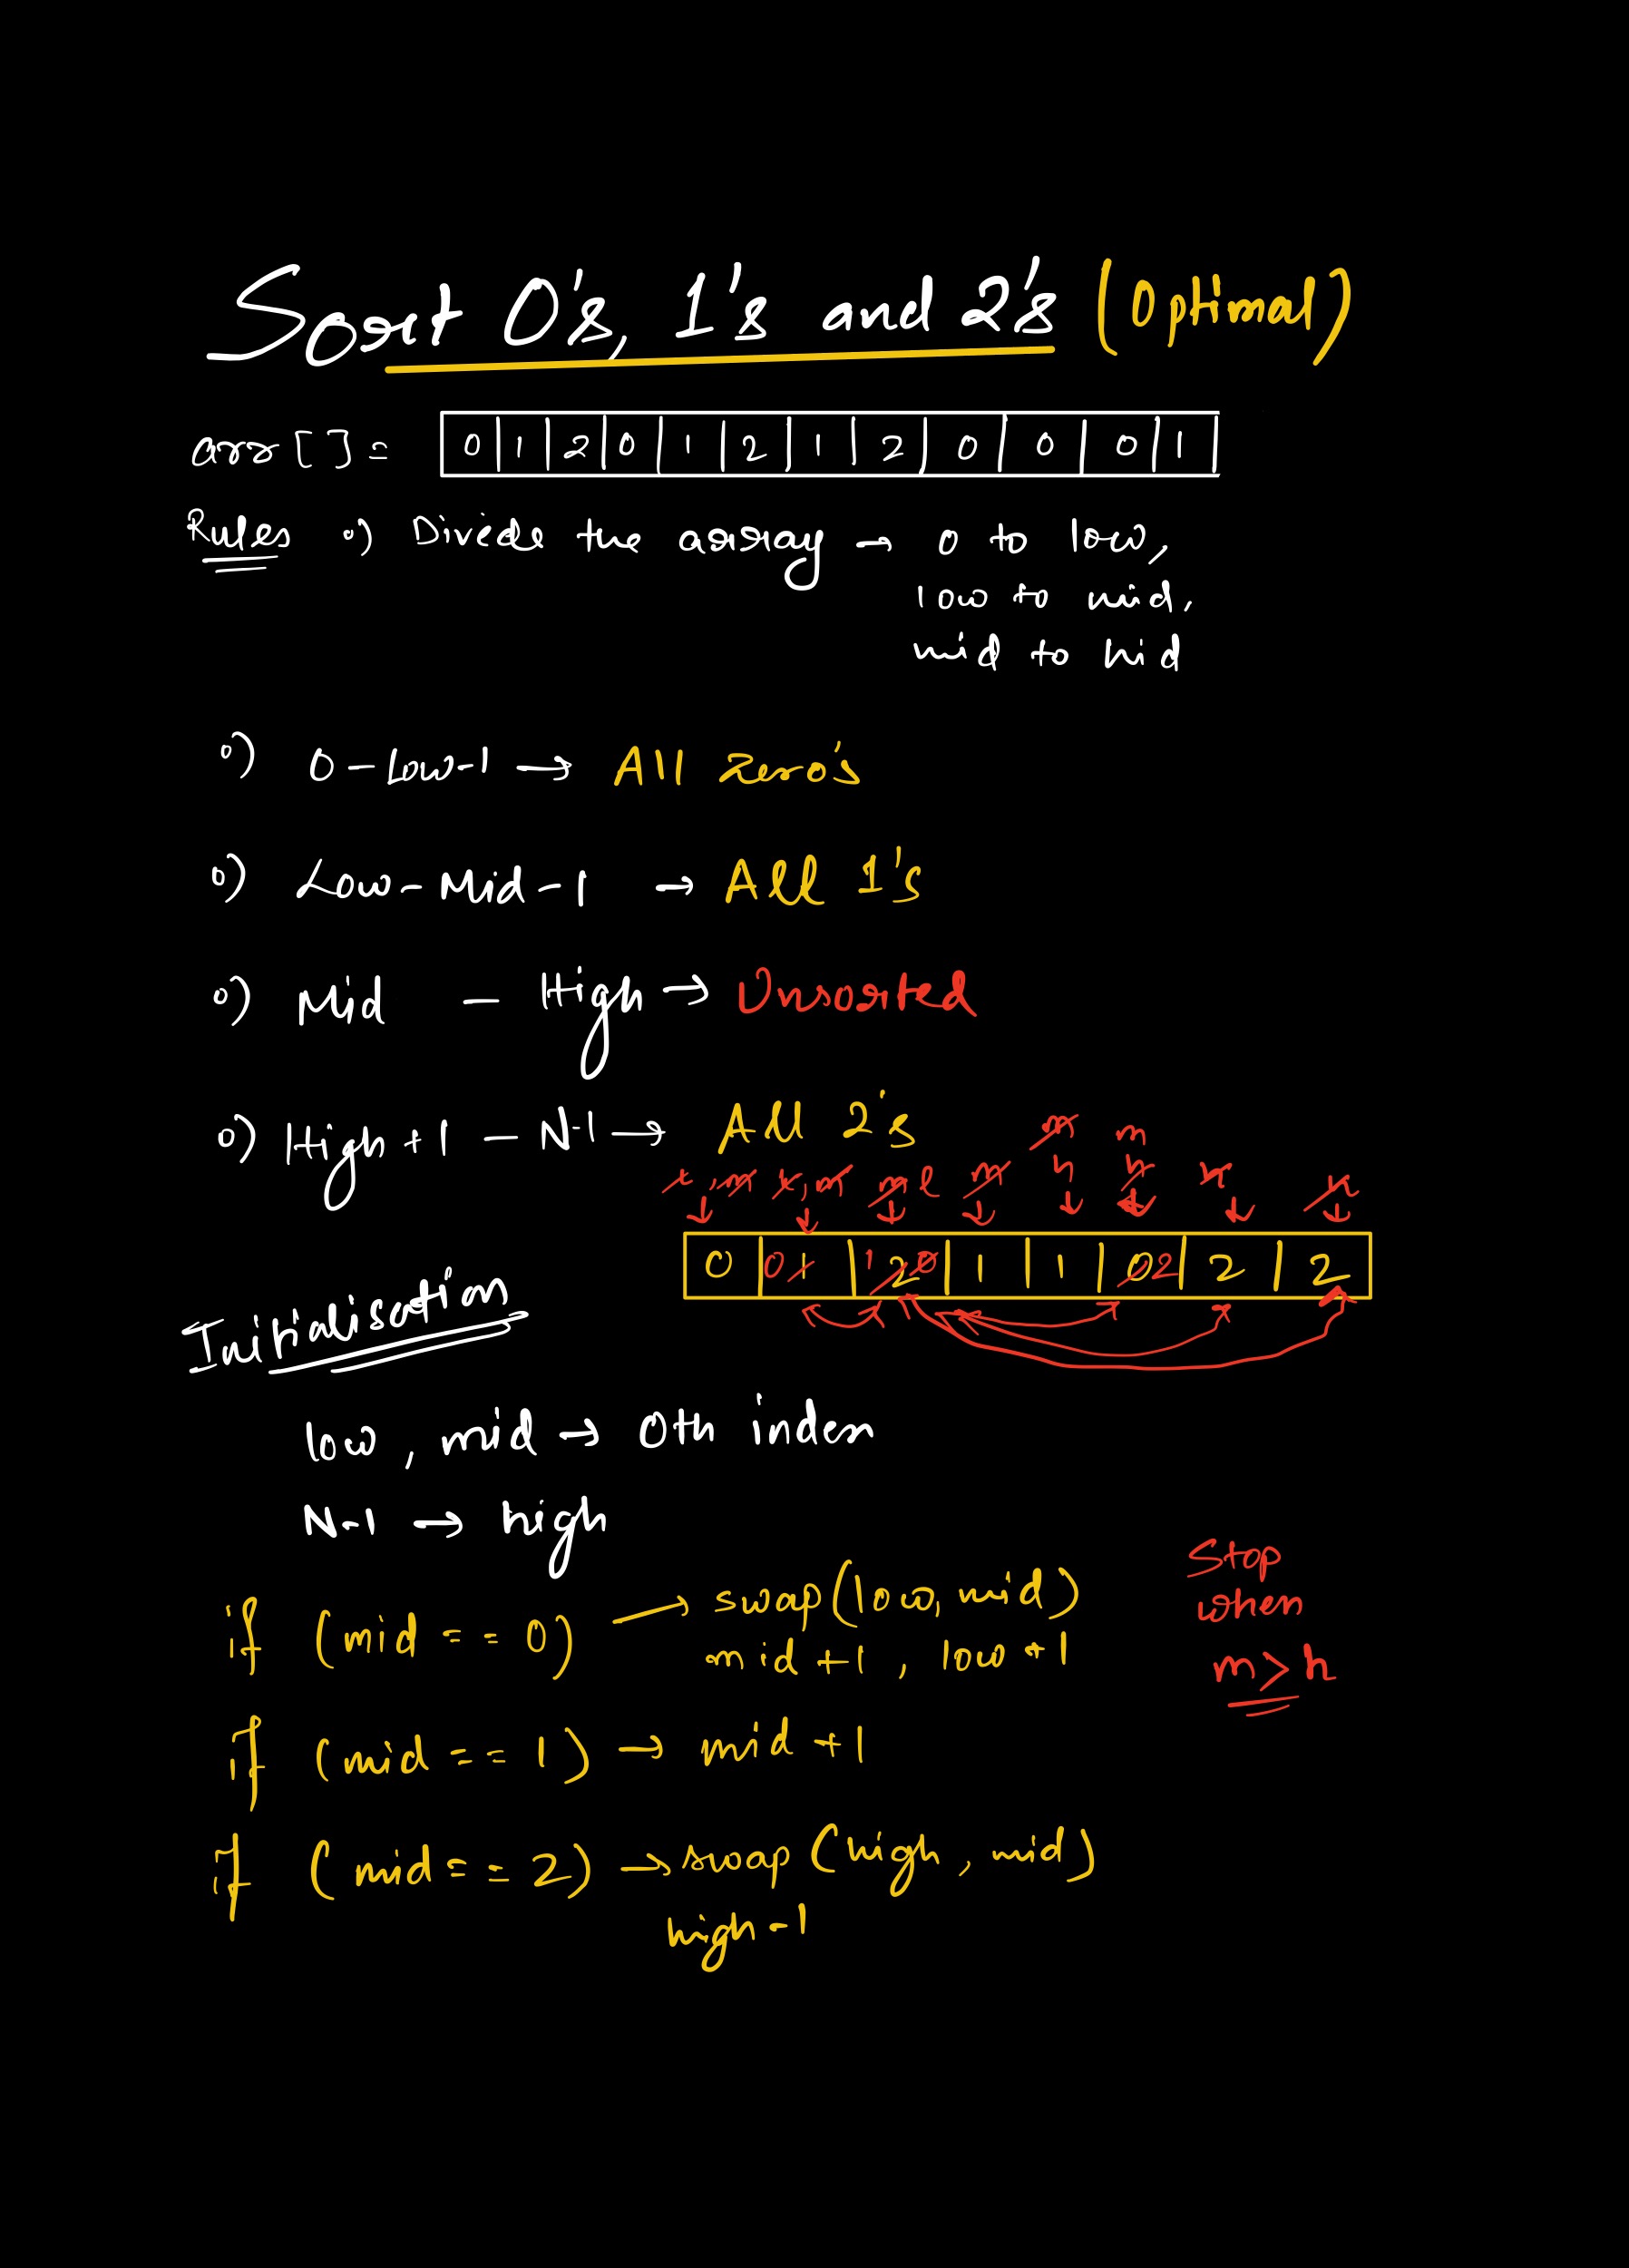 Sort 0's, 1's and 2's (Optimal)
arr[] = 0 | 1 | 2 | 0 | 1 | 2 | 1 | 2 | 0 | 0 | 0 | 1 |
Rules o) Divide the array → 0 to low,
low to mid,
mid to hid
o) 0 - Low-1 → All Zero's
o) Low - Mid - 1 → All 1's
o) Mid - High → Unsorted
o) High + 1 - N-1 → All 2's
m
m h
m m l m h h
0 | 0 1 | 1 2 0 | 1 | 1 | 0 2 | 2 | 2
Initialisation
low, mid → 0th index
N-1 → high
if (mid == 0) → swap(low, mid)
mid +1, low +1
Stop
when
m > h
if (mid == 1) → mid +1
if (mid == 2) → swap (high, mid)
high -1